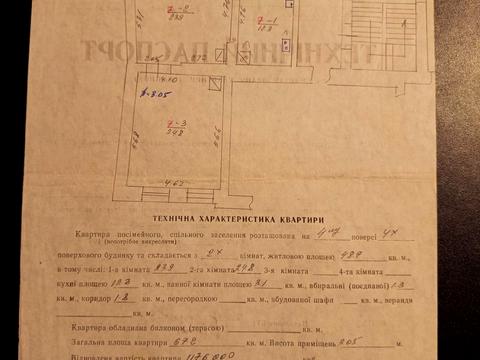 7-2
23.9
7-1
12.3
ТЕХНІЧНИЙ ПАСПОРТ
4.10
h-3.05
7-3
24.8
5.66
4.67
ТЕХНІЧНА ХАРАКТЕРИСТИКА КВАРТИРИ
Квартира посімейного, спільного заселення розташована на поверсі 4х
(непотрібне викреслити)
поверхового будинку та складається з 2х кімнат, житловою площею 48.9 кв. м,
в тому числі: 1-а кімната 23.9 2-га кімната 24.8 3-я кімната 4-та кімната
кухні площею 12.3 кв. м, ванної кімнати площею 3.1 кв. м, вбиральні (поєднаної) 1.3
кв. м, коридор 1.8 кв. м, перегородкою кв. м, вбудованої шафи кв. м, веранди
кв. м.
Квартира обладнана балконом (терасою) кв. м.
Загальна площа квартири 67.2 кв. м. Висота приміщень 3.05 м.
Відновлена вартість квартири 1176.000